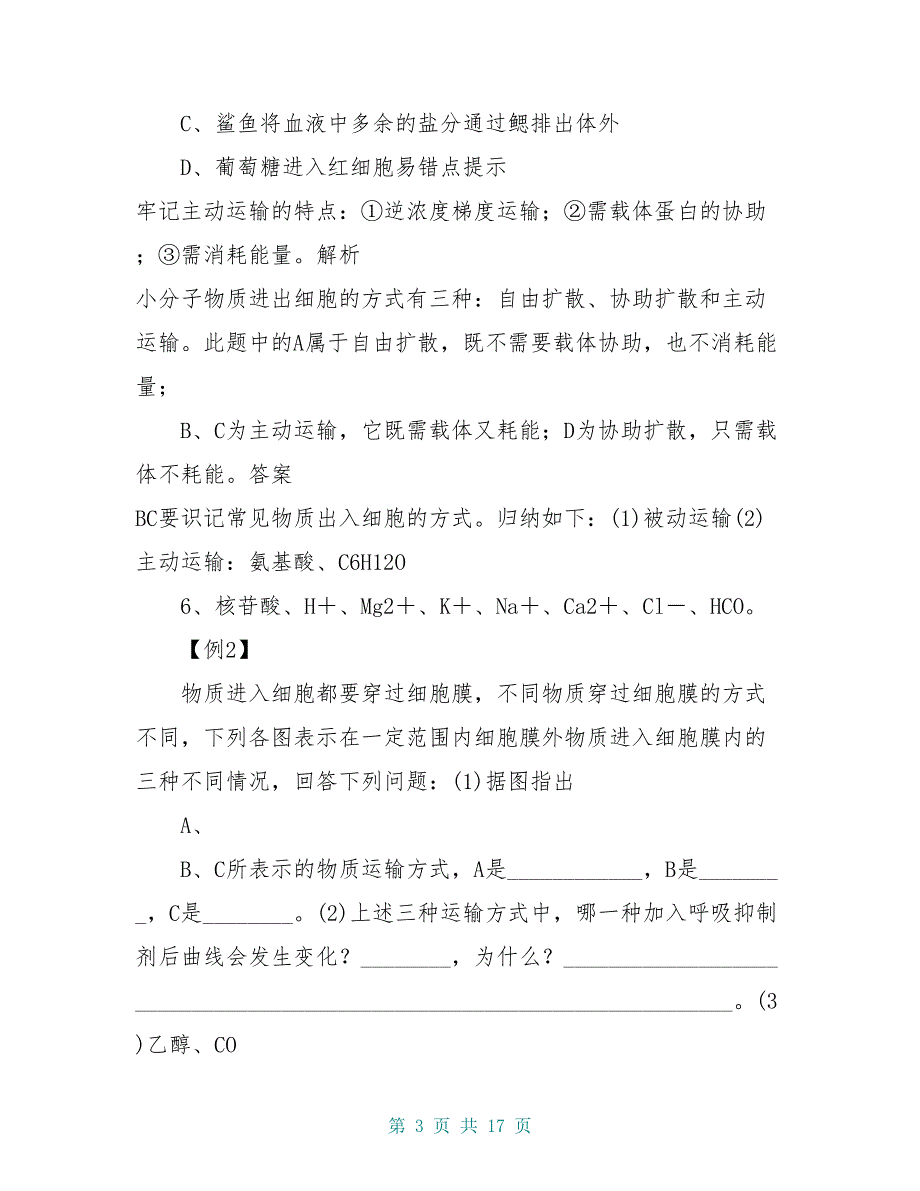 C、鲨鱼将血液中多余的盐分通过鳃排出体外
D、葡萄糖进入红细胞易错点提示
牢记主动运输的特点：①逆浓度梯度运输；②需载体蛋白的协助
；③需消耗能量。解析
小分子物质进出细胞的方式有三种：自由扩散、协助扩散和主动
运输。此题中的A属于自由扩散，既不需要载体协助，也不消耗能
量；
B、C为主动运输，它既需载体又耗能；D为协助扩散，只需载
体不耗能。答案
BC要识记常见物质出入细胞的方式。归纳如下：(1)被动运输(2)
主动运输：氨基酸、C6H12O
6、核苷酸、H＋、Mg2＋、K＋、Na＋、Ca2＋、Cl－、HCO。
【例2】
物质进入细胞都要穿过细胞膜，不同物质穿过细胞膜的方式
不同，下列各图表示在一定范围内细胞膜外物质进入细胞膜内的
三种不同情况，回答下列问题：(1)据图指出
A、
B、C所表示的物质运输方式，A是____________，B是_______
_，C是________。(2)上述三种运输方式中，哪一种加入呼吸抑制
剂后曲线会发生变化？________，为什么？___________________
_____________________________________________________。(3
)乙醇、CO
第 3 页 共 17 页